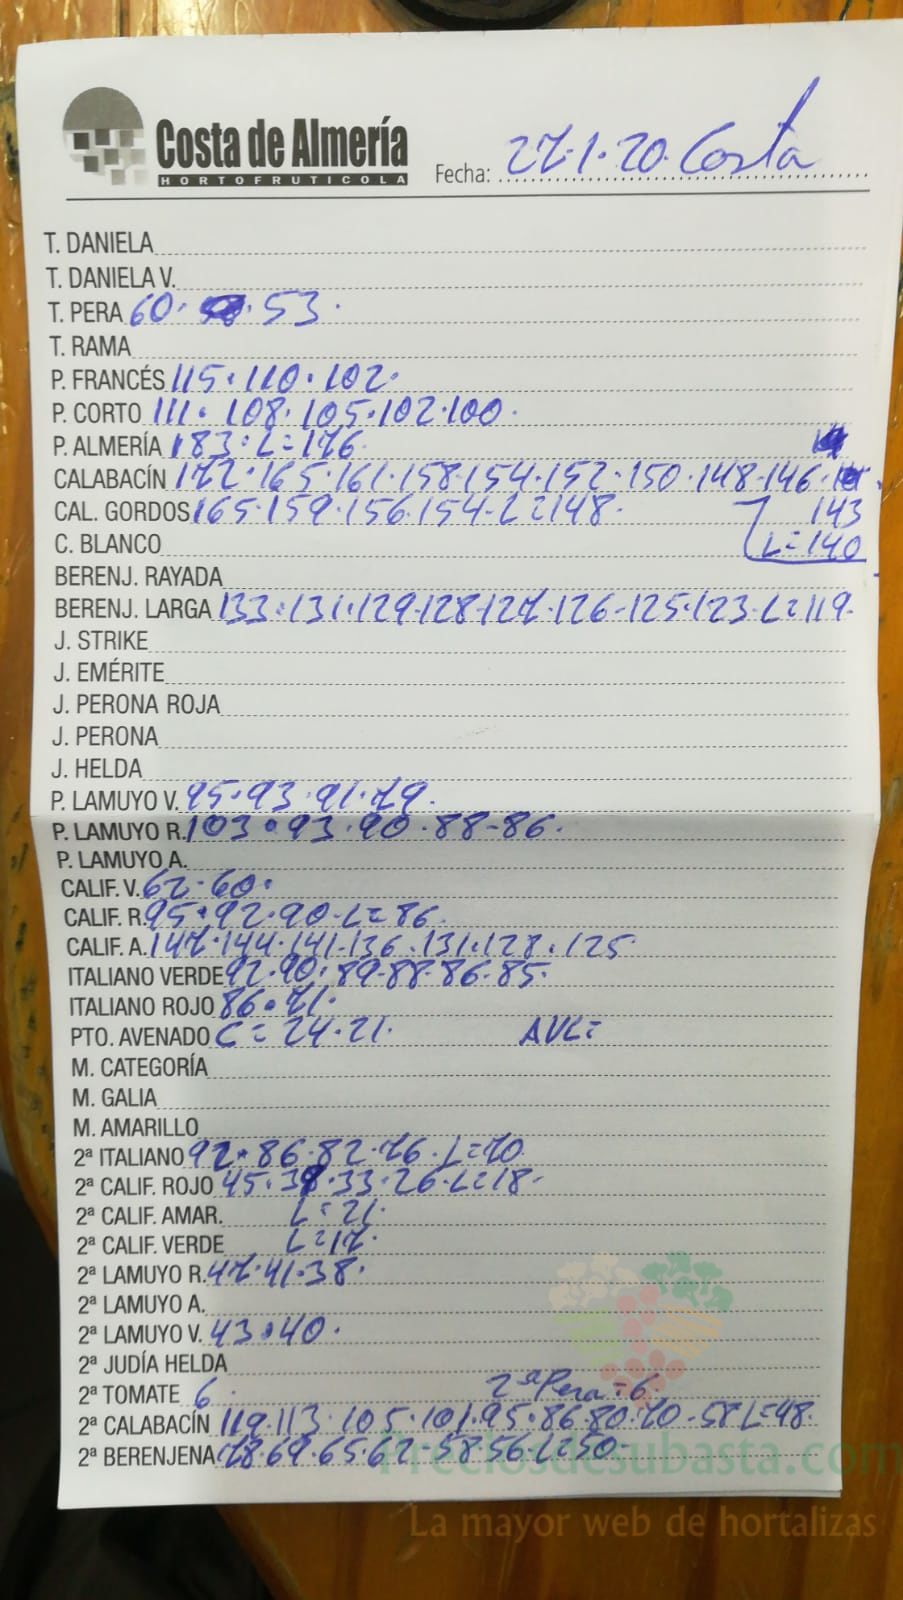 Costa de Almería
HORTOFRUTICOLA
Fecha: 27·1·20 Costa
T. DANIELA
T. DANIELA V.
T. PERA 60· · 53·
T. RAMA
P. FRANCÉS 115·110·102·
P. CORTO 111·108·105·102·100·
P. ALMERÍA 183·L=176·
CALABACÍN 172·165·161·158·154·152·150·148·146·
CAL. GORDOS 165·159·156·154·L=148· 143
C. BLANCO L=140
BERENJ. RAYADA
BERENJ. LARGA 133·131·129·128·127·126·125·123·L=119·
J. STRIKE
J. EMÉRITE
J. PERONA ROJA
J. PERONA
J. HELDA
P. LAMUYO V. 95·93·91·79·
P. LAMUYO R. 103·93·90·88-86·
P. LAMUYO A.
CALIF. V. 62·60·
CALIF. R. 95·92·90·L=86·
CALIF. A. 147·144·141·136·131·128·125·
ITALIANO VERDE 92·90·89·88·86·85·
ITALIANO ROJO 86·71·
PTO. AVENADO C=24·21· AVL=
M. CATEGORÍA
M. GALIA
M. AMARILLO
2ª ITALIANO 92·86·82·76·L=70·
2ª CALIF. ROJO 45· ·33·26·L=18·
2ª CALIF. AMAR. L=21·
2ª CALIF. VERDE L=17·
2ª LAMUYO R. 47·41·38·
2ª LAMUYO A.
2ª LAMUYO V. 43·40·
2ª JUDÍA HELDA
2ª TOMATE 6· 2ª Pera=6·
2ª CALABACÍN 119·113·105·101·95·86·80·70·58 L=48·
2ª BERENJENA 78·69·65·62·58·56·L=50·
Preciosdesubasta.com
La mayor web de hortalizas